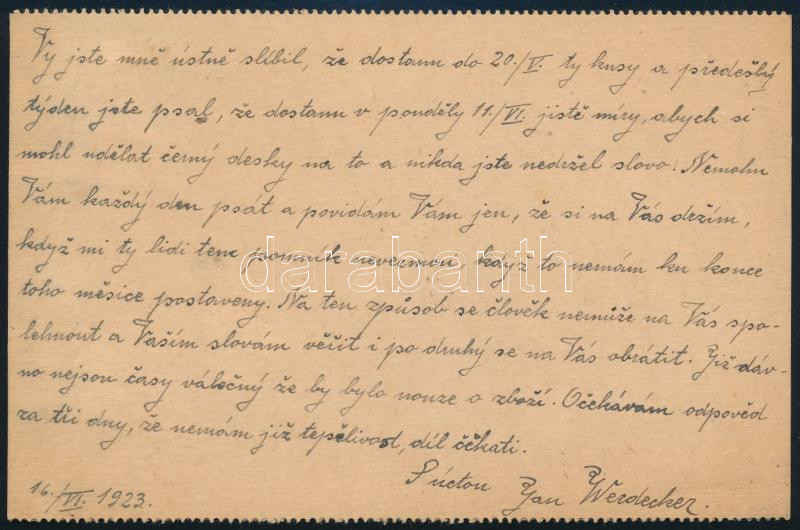 Vy jste mně ústně slíbil, že dostanu do 20./V. ty kusy a předešlý
týden jste psal, že dostanu v ponděly 11./VI. jistě míry, abych si
mohl udělat černý desky na to a nikda jste nedržel slovo. Nemohu
Vám každý den psát a povidám Vám jen, že si na Vás držím,
když mi ty lidi ten pomník nevezmou, když to nemám ku konce
toho měsice postaveny. Na ten způsob se člověk nemůže na Vás spo-
lehnout a Vaším slovám věřit i po druhý se na Vás obrátit. Již dáv-
no nejsou časy válečný že by bylo nouze o zboží. Očekávám odpověd
za tři dny, že nemám již tepělivost, díl čěkati.
S úctou Jan Werdecker.
16./VI. 1923.
darabanth